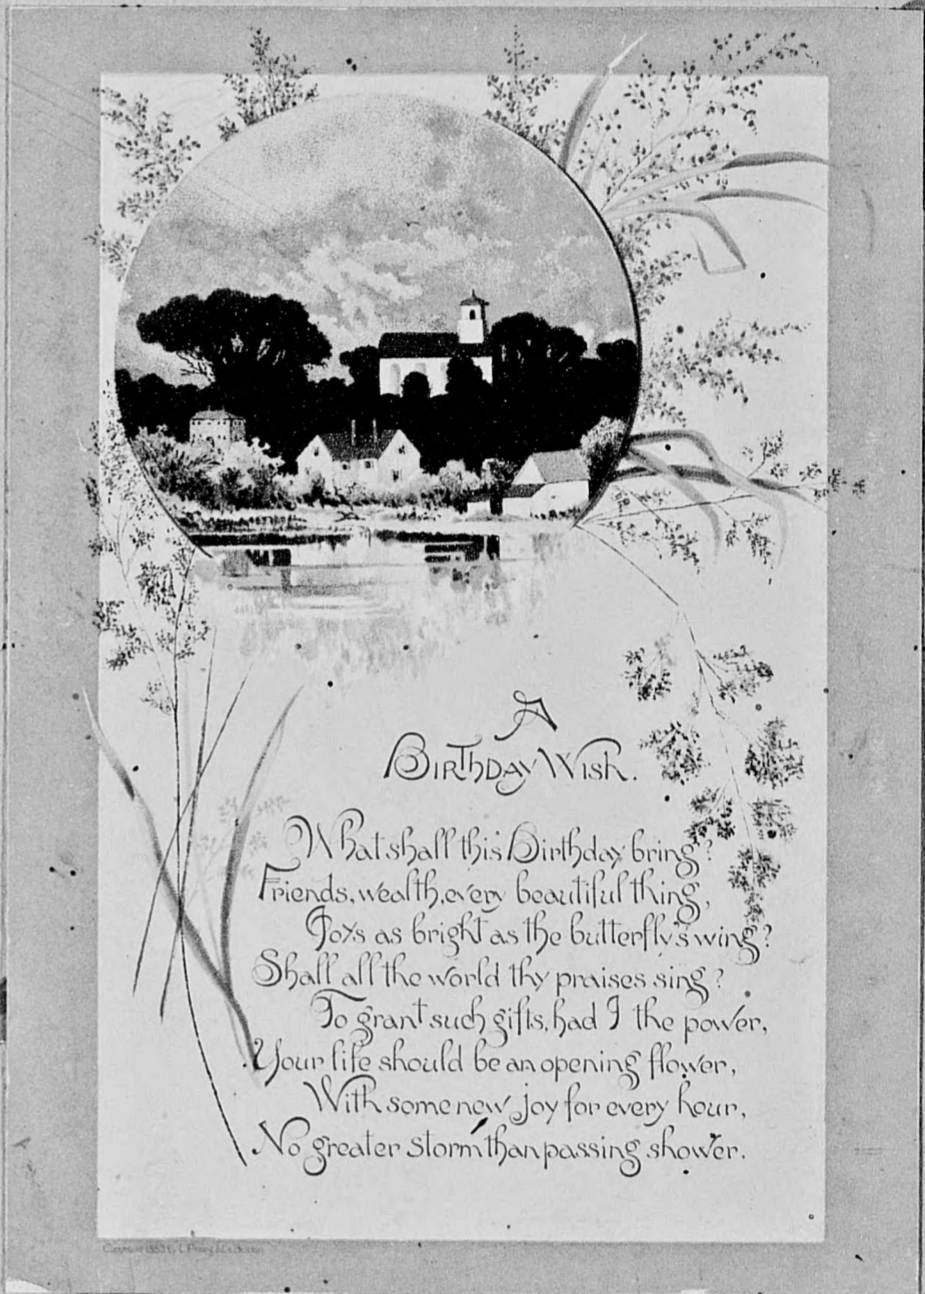 A
Birthday Wish.
What shall this Birthday bring?
Friends, wealth, every beautiful thing,
Joys as bright as the butterfly's wing?
Shall all the world thy praises sing?
To grant such gifts, had I the power,
Your life should be an opening flower,
With some new joy for every hour,
No greater storm than passing shower.
Copyright 1883 by L. Prang &